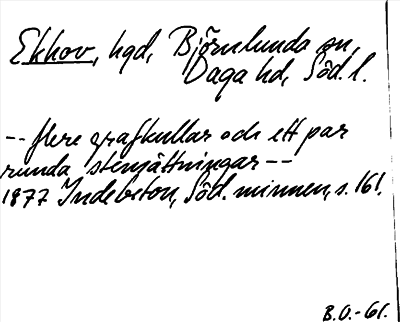 Ekhov, hgd, Björnlunda sn,
Daga hd, Söd. l.
-- flere grafkullar och ett par
runda stensättningar --
1877 Indebetou, Söd. minnen, s. 161.
B.O.-61.